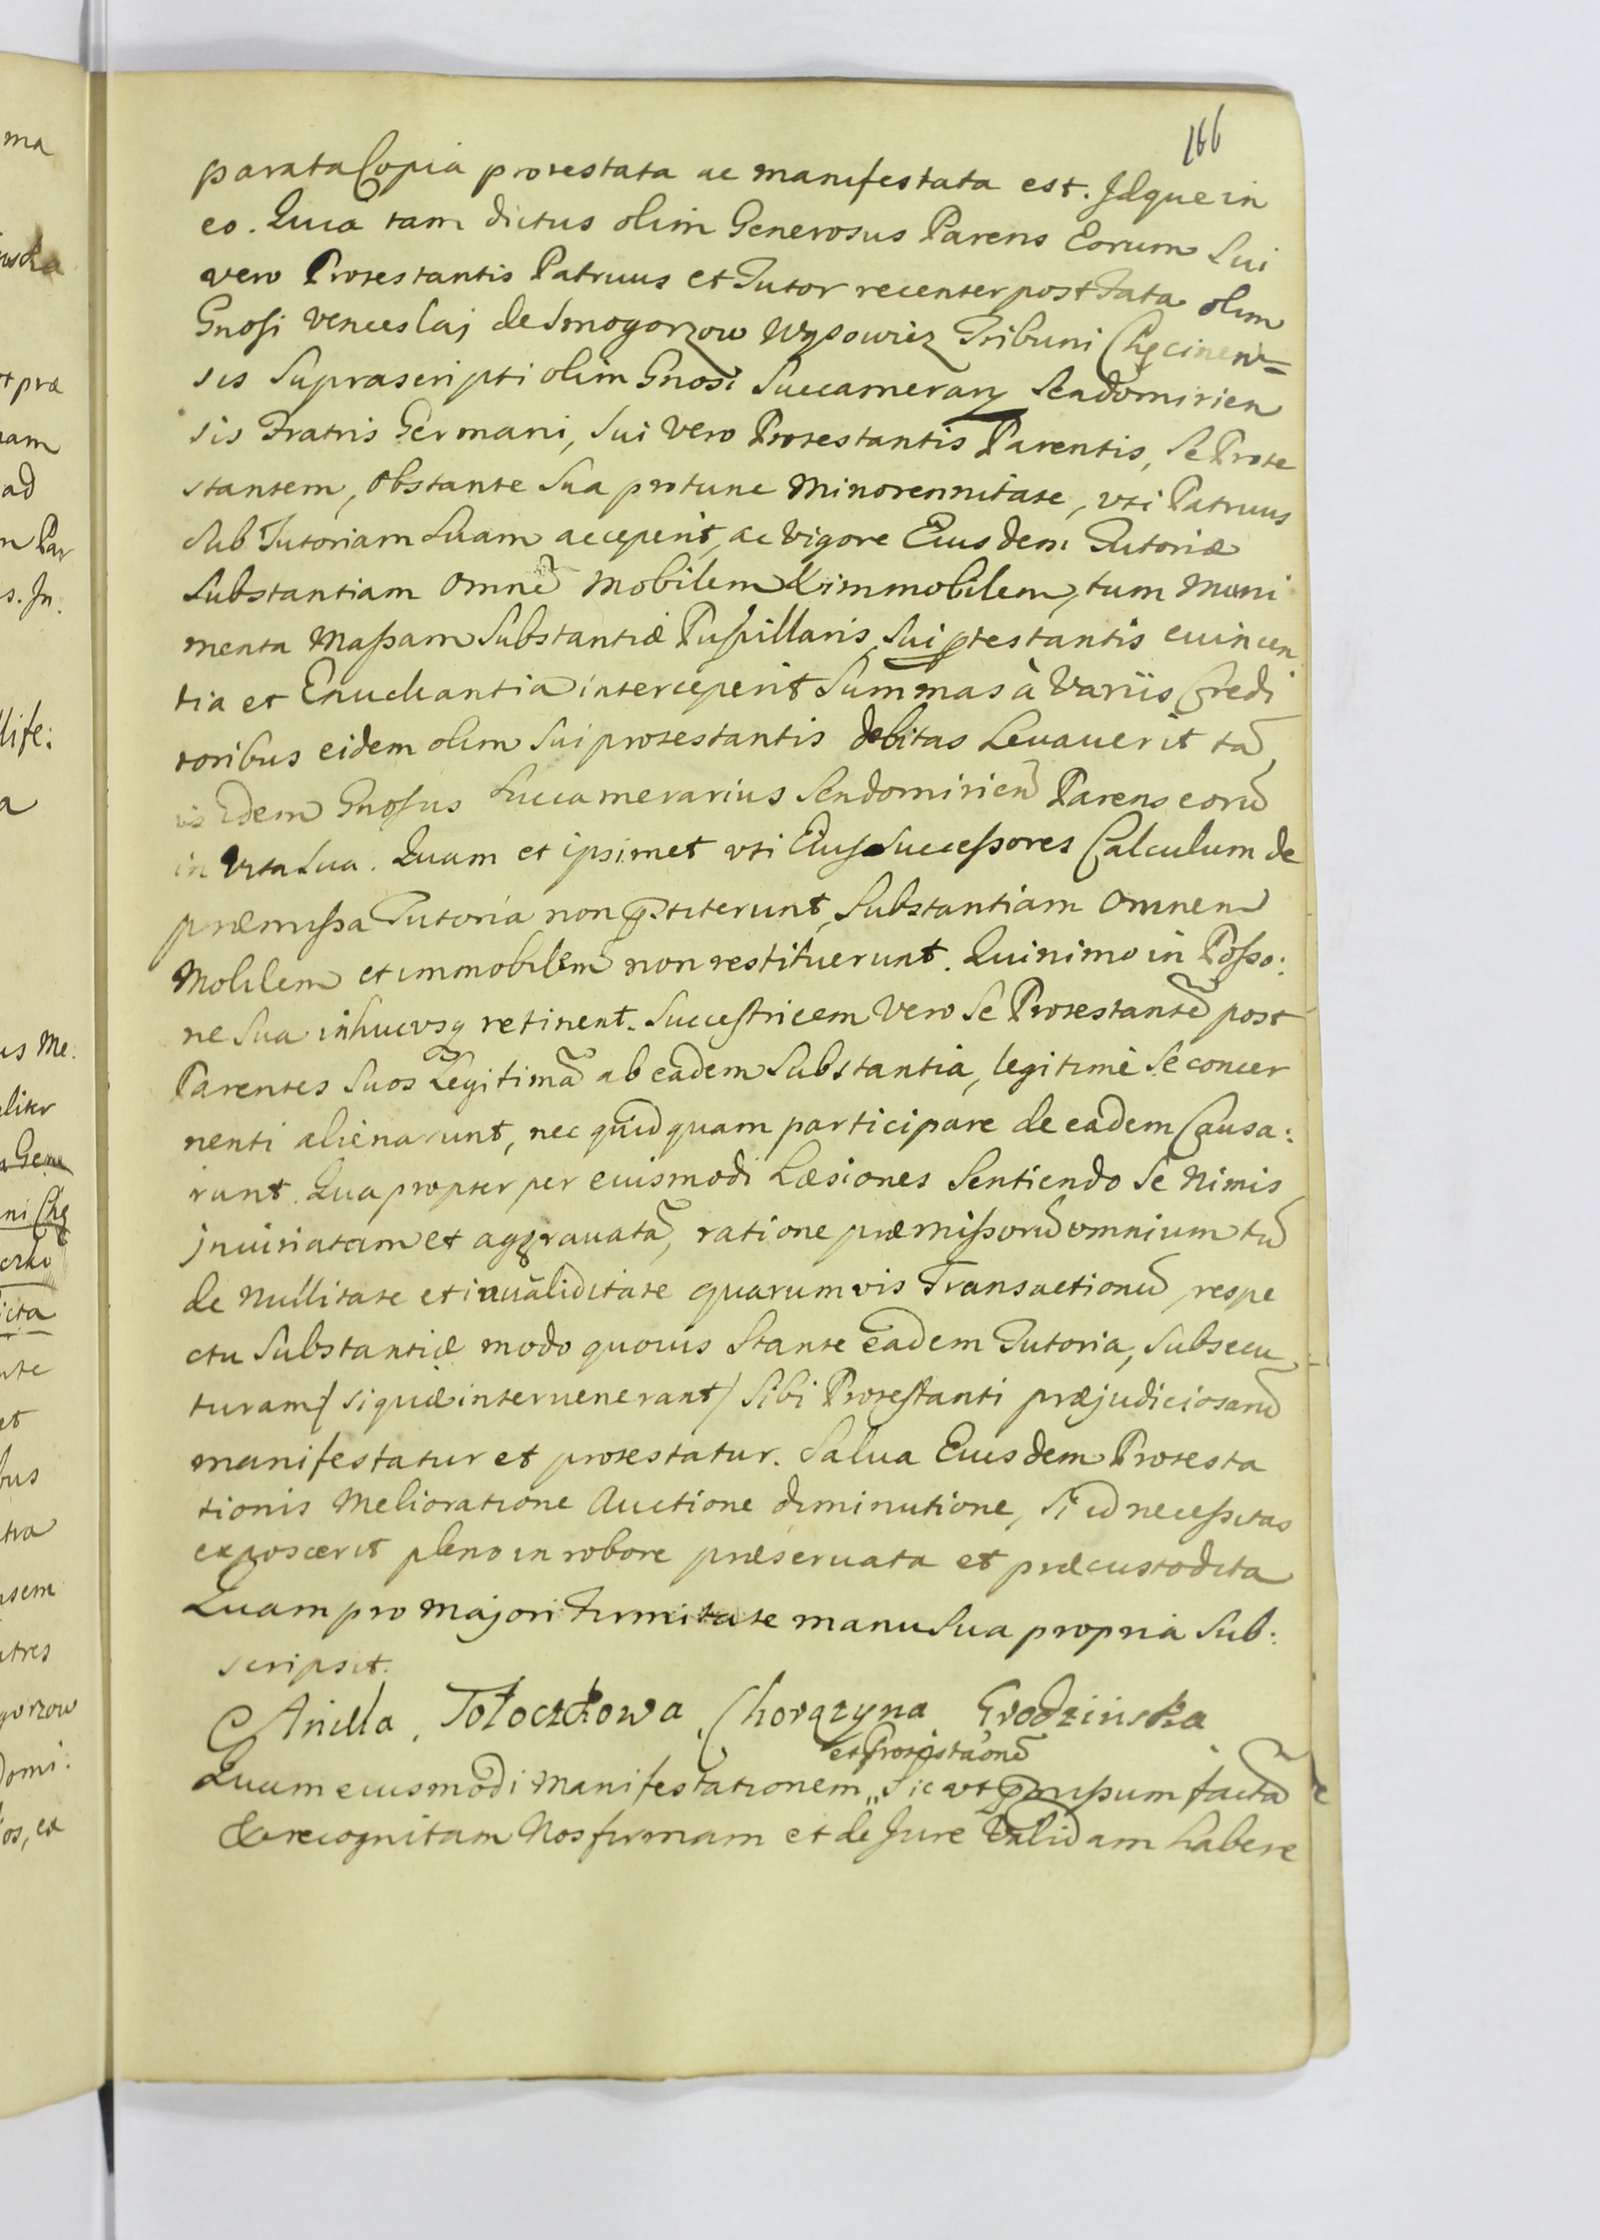 166
parata Copia protestata ac manifestata est. Idque in
eo. Quia tam dictus olim Generosus Parens Eorum Sui
vero Protestantis Patruus et Tutor recenter post Fata olim
Gnosi Venceslaj de Smogorzow Wąsowicz Tribuni Chęcinen=
sis Suprascripti olim Gnosi Succamerary Sendomirien
sis Fratris Germani, Sui Vero Protestantis Parentis, Se Prote
stantem, Obstante Sua protunc Minorennitate, uti Patruus
Sub Tutoriam Suam acceperit, ac Vigore Eiusdem Tutoriæ
Substantiam Omnẽ Mobilem & immobilem, tum Muni
menta Maßam Substantiæ Pupillaris Sui ptestantis euincen
tia et Enucleantia interceperit Summas à Variis Credi
toribus eidem olim Sui protestantis debitas Levauerit tã
is Idem Gnosus Succamerarius Sendomirień Parens eorũ
in Vita Sua. Quam et ipsimet uti Eius Successores Calculum de
præmißa Tutoria non pstiterunt, Substantiam Omnem
Mobilem et immobilem non restituerunt. Quinimo in Poßo:
ne Sua inhucusq retinent. Succestricem Vero Se Protestantẽ post
Parentes Suos Legitimã ab eadem Substantia, legitime Se concer
nenti alienarunt, nec quidquam participare de eadem Causa:
runt. Qua propter per eiusmodi Læsiones Sentiendo Se Nimis
injuriatam et aggrauatã, ratione præmißorũ omnium tũ
de Nullitate et inualiditate quarumvis Transactionũ, respe
ctu Substantiæ modo quouis Stante eadem Tutoria, Subsecu
turam / si quæ interuenerant / Sibi Protestanti præjudiciosarũ
manifestatur et protestatur. Salua Eiusdem Protesta
tionis Melioratione Auctione diminutione, Si id neceßitas
exposcerit pleno in robore præseruata et præcustodita
Quam pro Majori Firmitate manu Sua propria Sub:
scripsit.
Aniella Tołoczkowa Chorązyna Grodzinska
et Protestãonẽ
Quam eiusmodi Manifestationem,, Sic ut pmißum factã
& recognitam Nos firmam et de Jure Validam habere